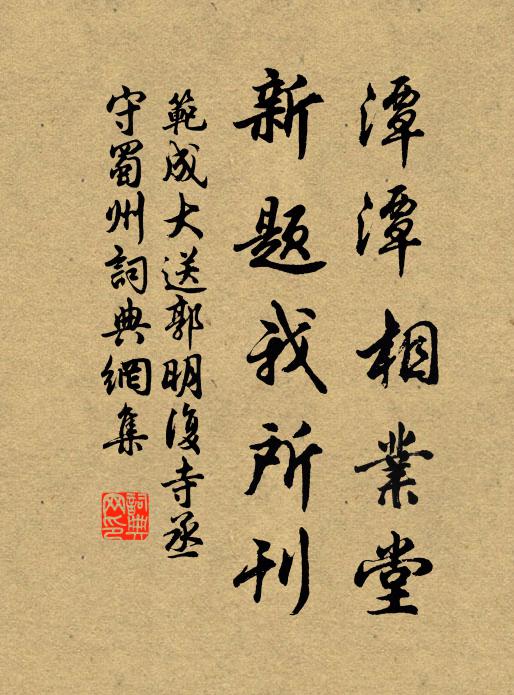 潭潭相業堂
新题我所刊
範成大送郭明復寺丞
守蜀州詞典網集
詞典网印